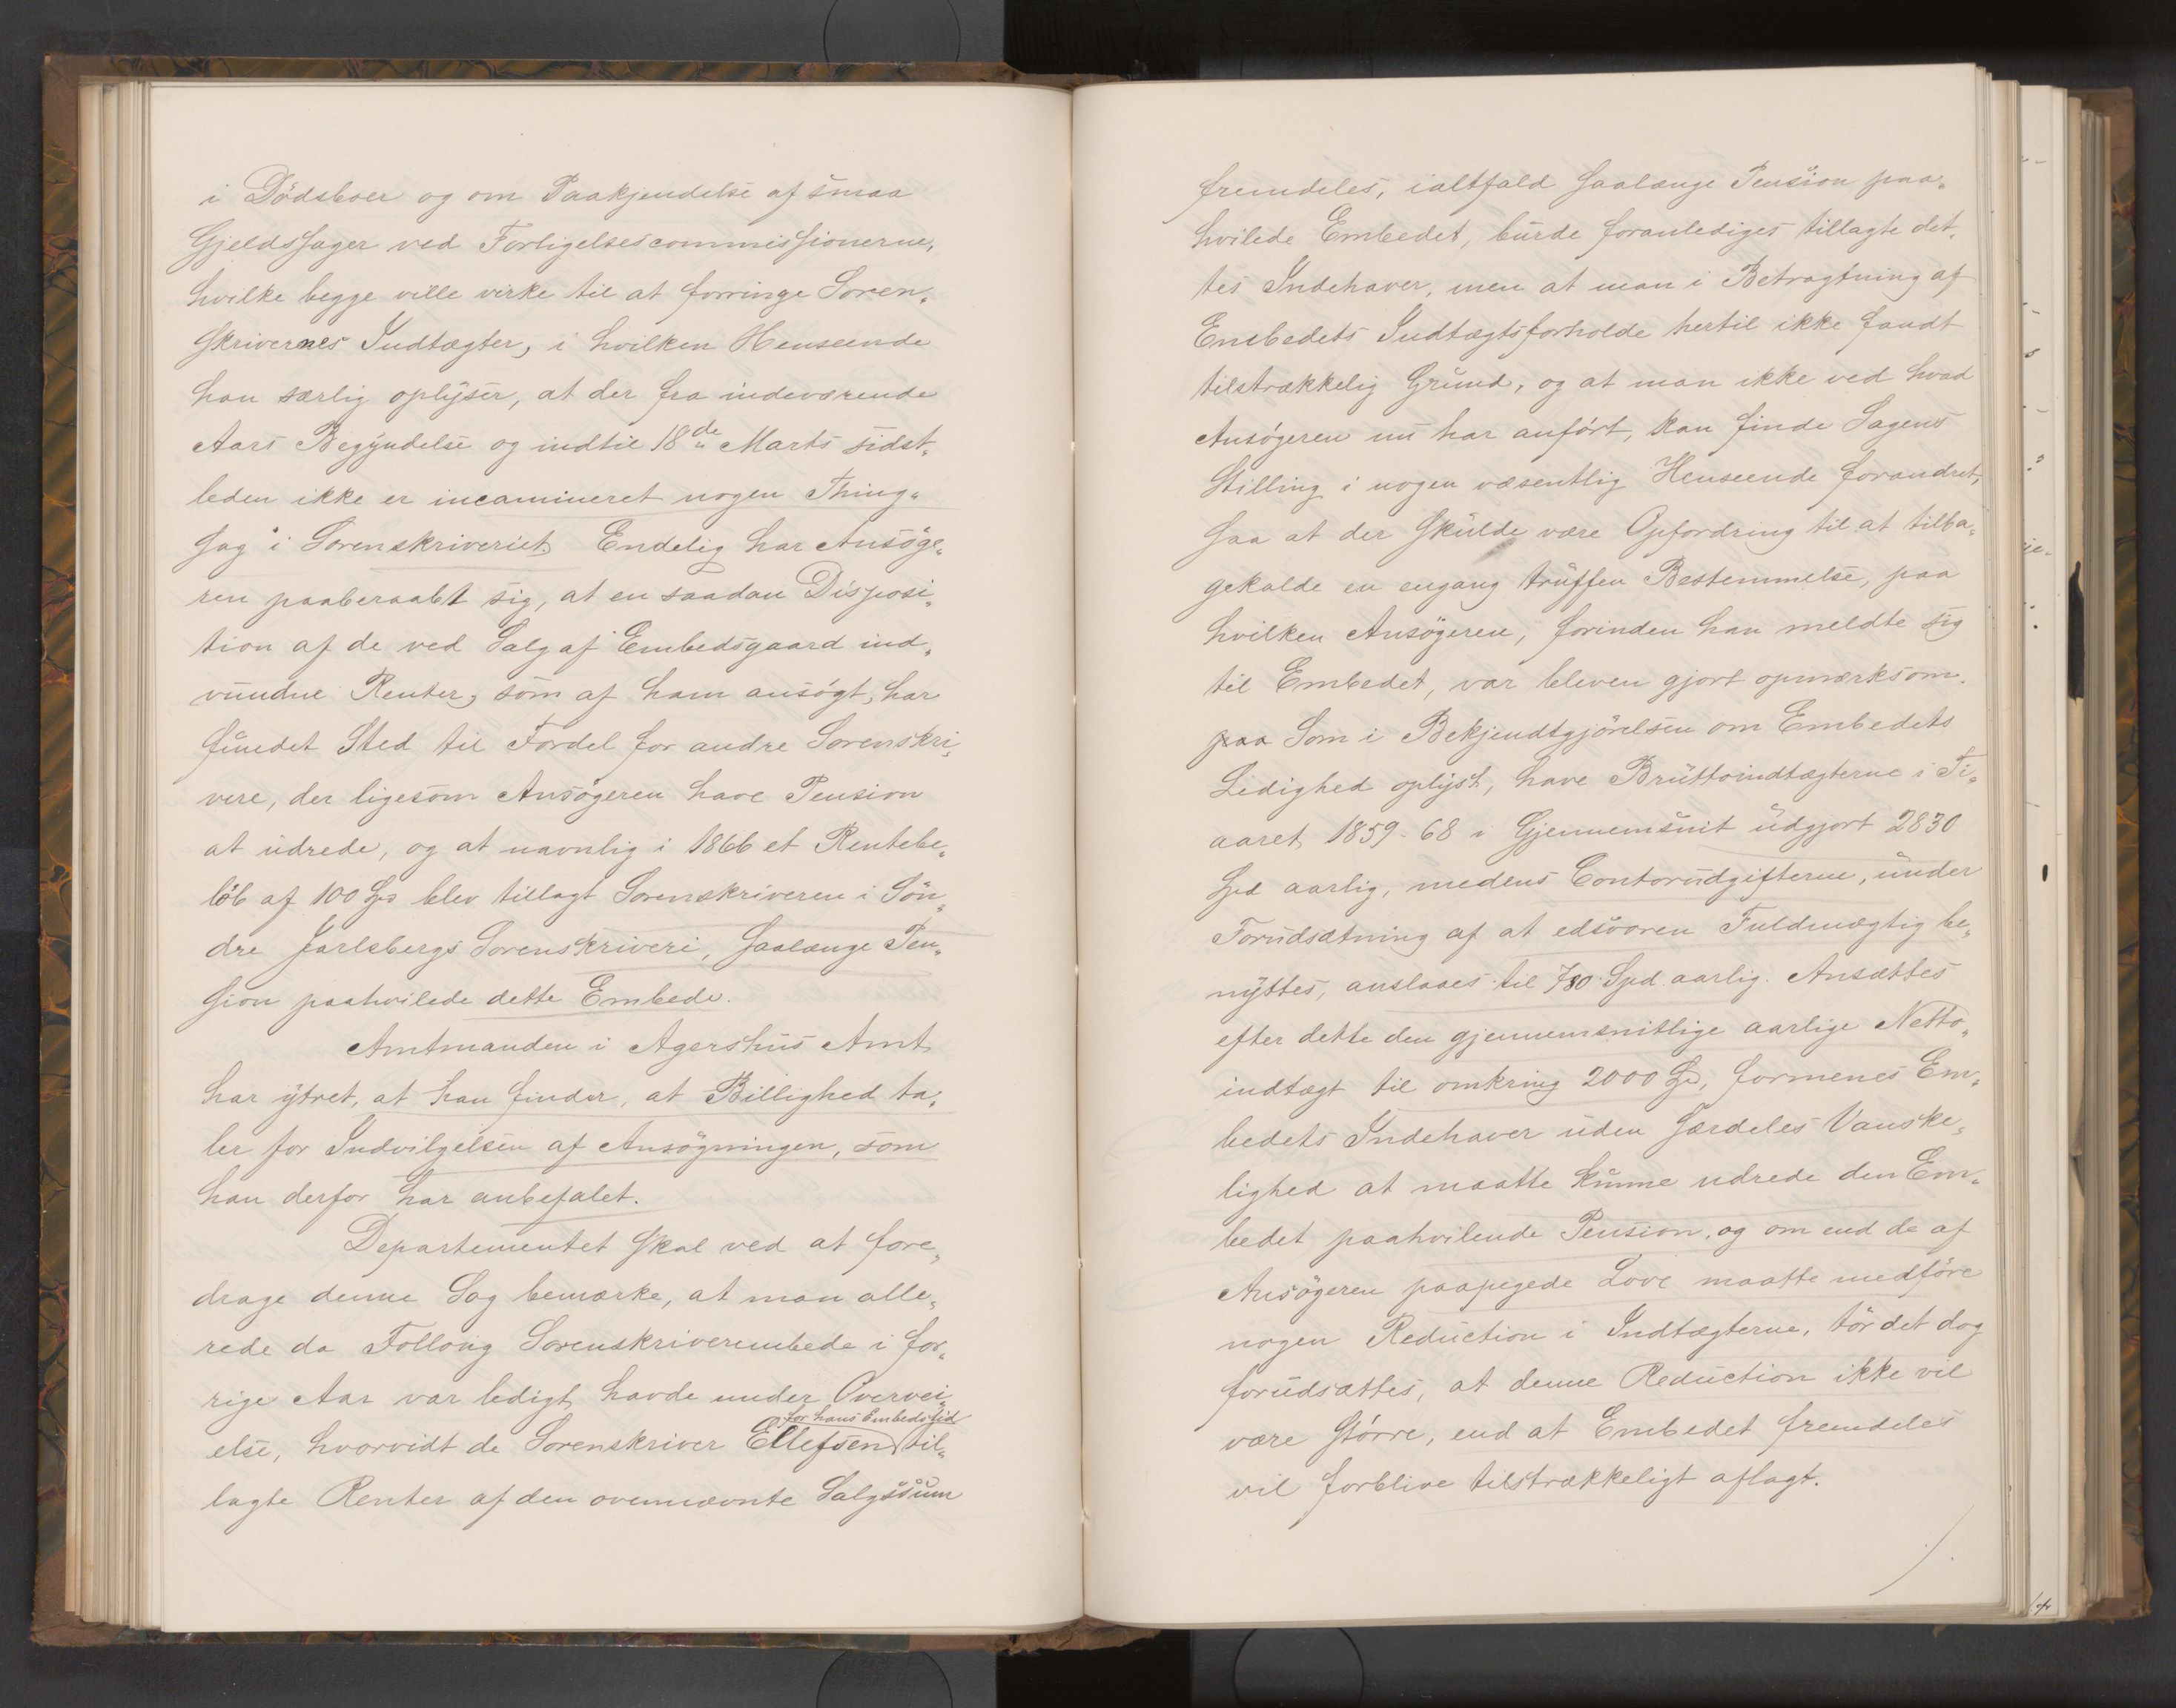 i Dödsboer og om Paakjendelse af smaa
Gjeldssager ved Forligelsescommissionerne,
hvilke begge ville virke til at forringe Soren„
skrivernes Indtægter, i hvilken Henseende
han særlig oplyser, at der fra indeværende
Aars Begyndelse og indtil 18de Marts sidst„
leden ikke er incamineret nogen Thing„
sag i Sorenskriveriet. Endelig har Ansöge„
ren paaberaabt sig, at en saadan Disposi„
tion af de ved Salg af Embedsgaard ind„
vundne Renter, som af ham ansögt, har
fundet Sted til Fordel for andre Sorenskri„
vere, der ligesom Ansögeren have Pension
at udrede, og at navnlig i 1866 et Rentebe„
löb af 100 Spd blev tillagt Sorenskriveren i Sön„
dre Jarlsbergs Sorenskriveri, saalænge Pen„
sion paahvilede dette Embede.
Amtmanden i Agershus Amt
har ytret, at han finder, at Billighed ta„
ler for Indvilgelsen af Ansögningen, som
han derfor har anbefalet.
Departementet skal ved at fore„
drage denne Sag bemærke, at man alle„
rede da Follong Sorenskriverembede i for„
rige Aar var ledigt havde under Overvei„
for hans Embedstid
else, hvorvidt de Sorenskriver Ellefsen til„
lagte Renter af den ovennævnte Salgssum
fremdeles, ialtfald saalænge Pension paa„
hvilede Embedet, burde foranlediges tillagte det„
tes Indehaver, men at man i Betragtning af
Embedets Indtægtsforholde hertil ikke fandt
tilstrækkelig Grund, og at man ikke ved hvad
Ansögeren nu har anfört, kan finde Sagens
Stilling i nogen væsentlig Henseende forandret,
saa at der skulde være Opfordring til at tilba„
gekalde en engang truffen Bestemmelse, paa
hvilken Ansögeren, forinden han meldte sig
til Embedet, var bleven gjort opmærksom.
paa Som i Bekjendtgjörelsen om Embedets
Ledighed oplyst, have Bruttoindtægterne i Ti„
aaret 1859-68 i Gjennemsnit udgjort 2830
Spd aarlig, medens Contorudgifterne, under
Forudsætning af at edsvoren Fuldmægtig be„
nyttes, anslaaes til 780 Spd aarlig. Ansættes
efter dette den gjennemsnitlige aarlige Netto„
indtægt til omkring 2000 Spd, formenes Em„
bedets Indehaver uden særdeles Vanske„
lighed at maatte kunne udrede den Em„
bedet paahvilende Pension, og om end de af
Ansögeren paapegede Love maatte medföre
nogen Reduction i Indtægterne, tör det dog
forudsættes, at denne Reduction ikke vil
være större, end at Embedet fremdeles
vil forblive tilstrækkeligt aflagt.